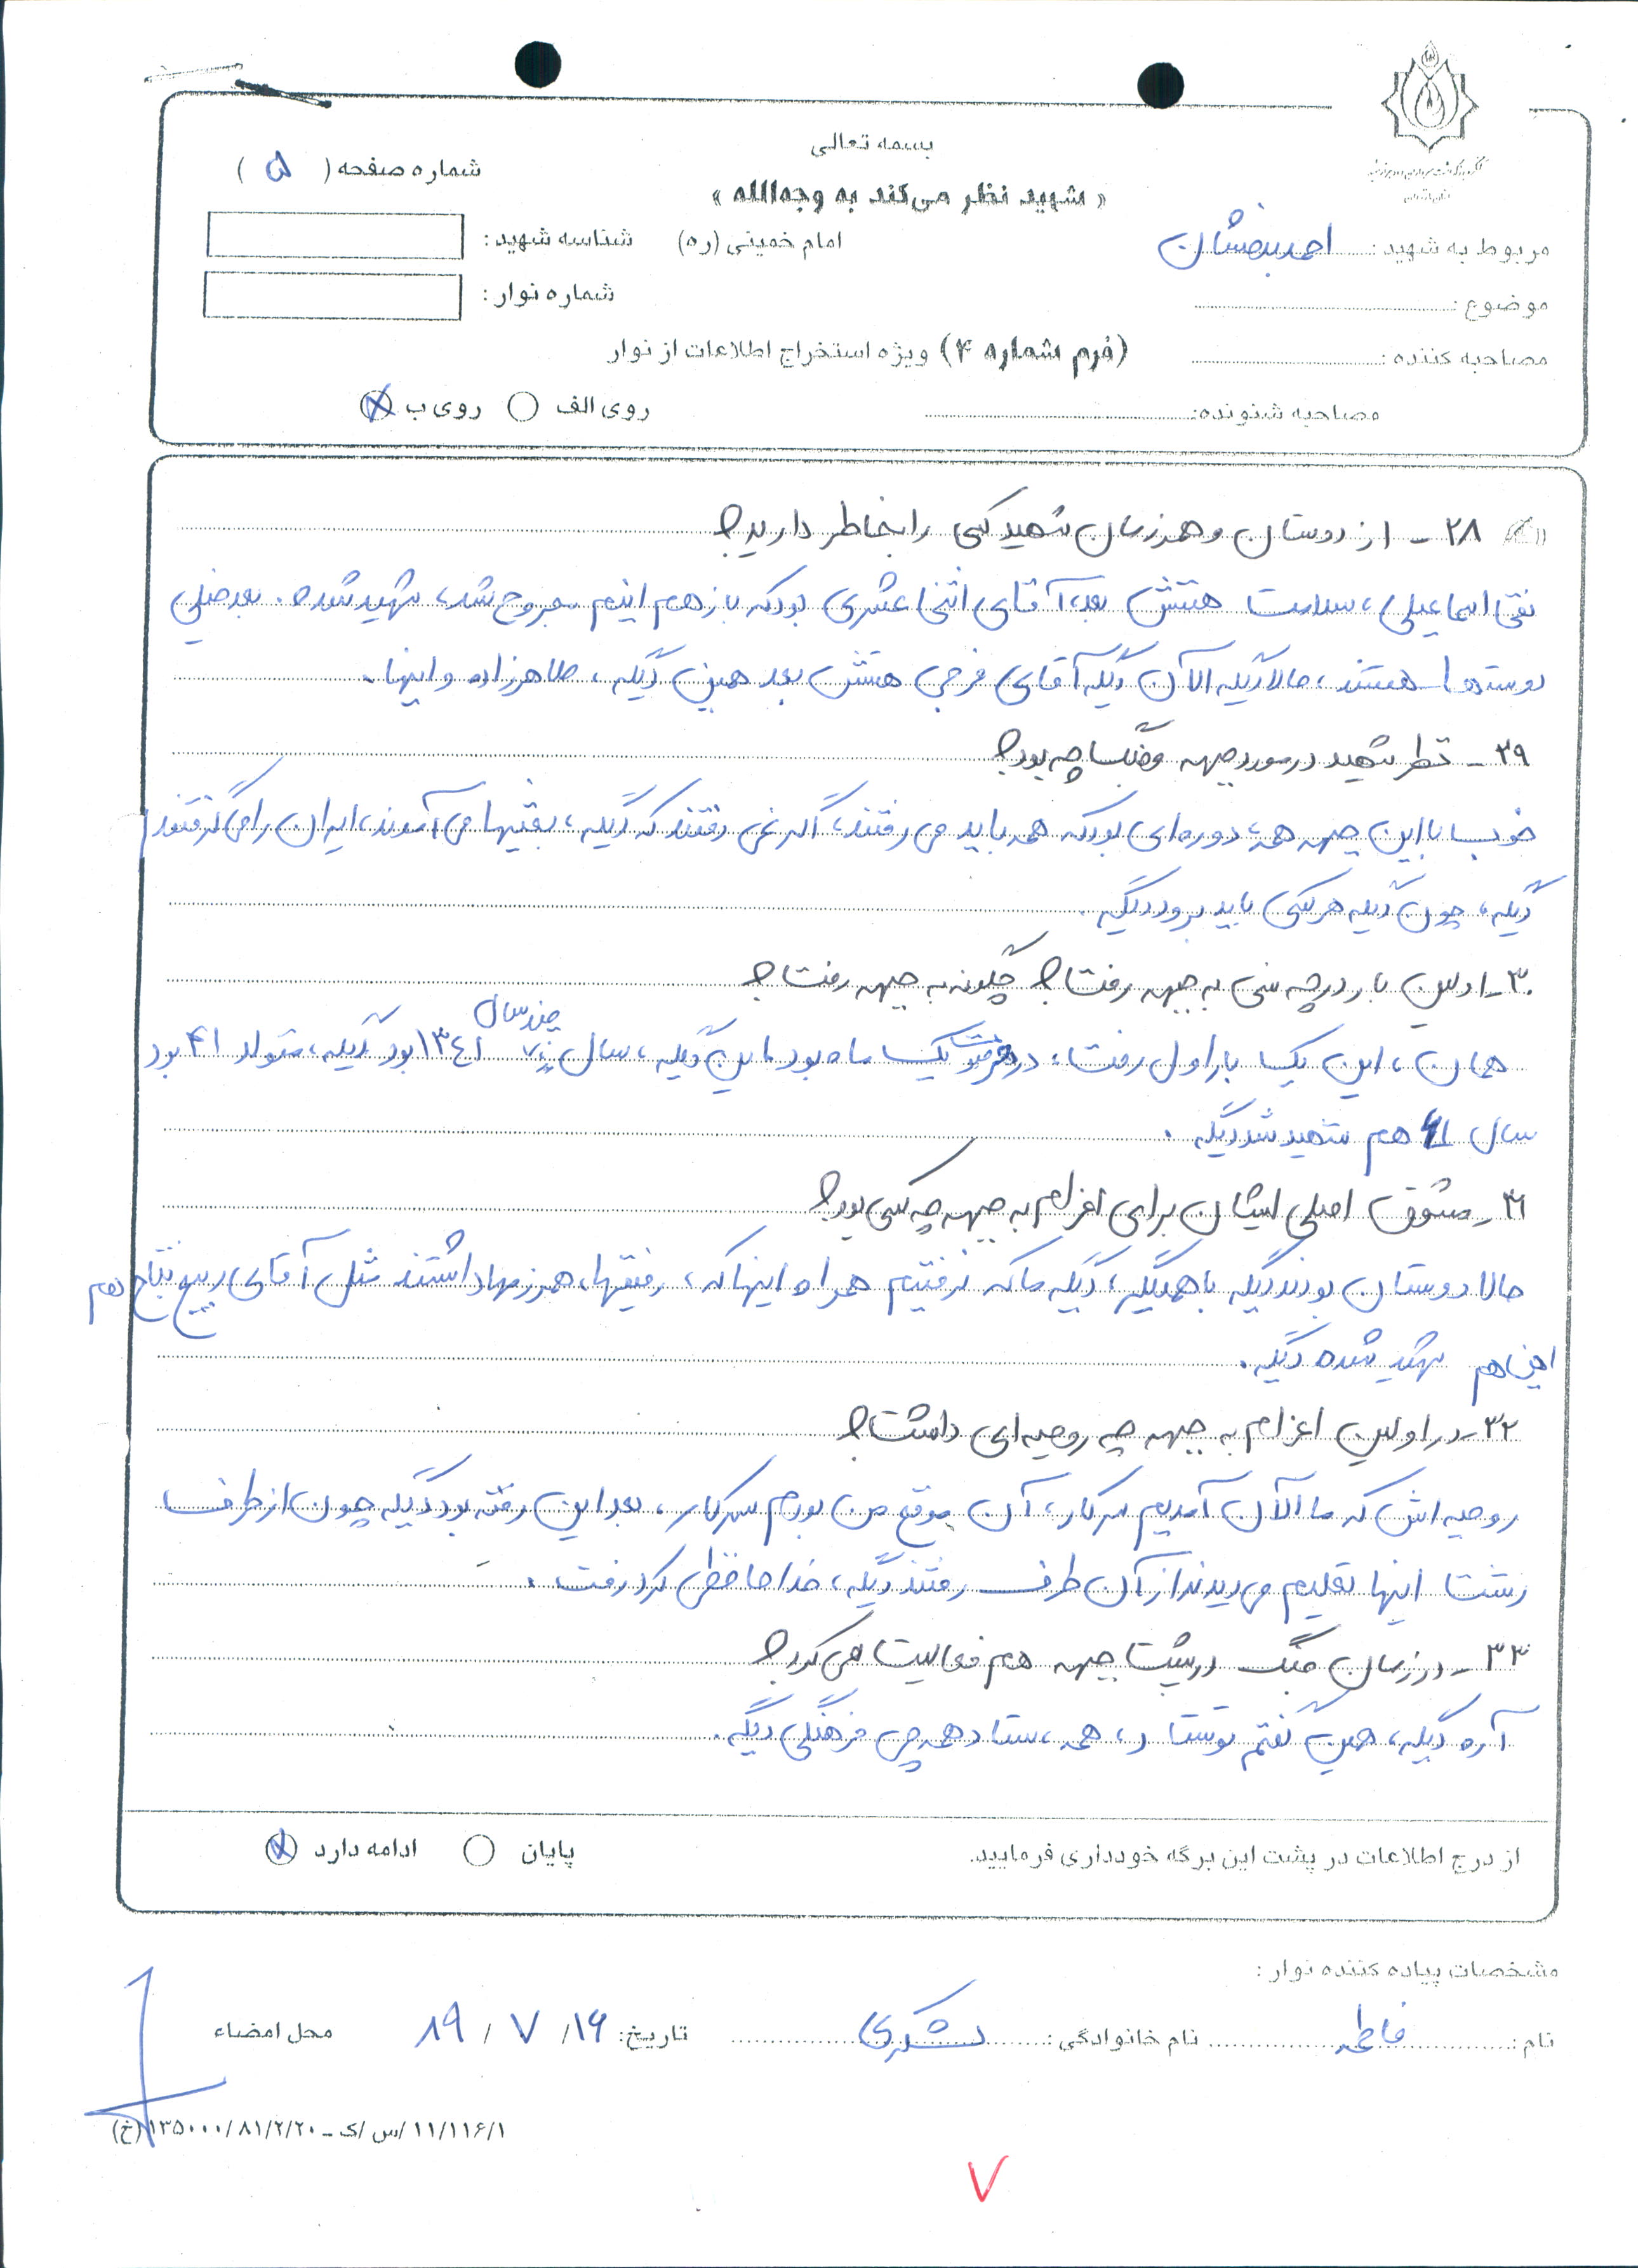 بسمه تعالی
« شهید نظر می‌کند به وجه‌الله »
امام خمینی (ره)
شماره صفحه ( ۵ )
شناسه شهید :
شماره نوار :
مربوط به شهید : احمد بدخشان
موضوع :
مصاحبه کننده :
(فرم شماره ۴) ویژه استخراج اطلاعات از نوار
مصاحبه شنونده:
روی الف روی ب
۲۸ - از دوستان و همرزمان شهید کسی را بخاطر دارید؟
تقی اسماعیلی، سلامت هستش بعد، آقای اثنی عشری بود که باز هم اینم مجروح شد، شهید شده. بعد خیلی
دوستها هستند، حالا دیگه الان دیگه آقای فرجی هستش بعد همین دیگه، طاهرزاده و اینها.
۲۹ - نظر شهید در مورد جبهه و جنگ چه بود؟
خوب با این جبهه همه، دوره‌ای بود که همه باید می رفتند، اگر نمی رفتند که دیگه، بعثیها می آمدند، ایران را می گرفتند
دیگه، چون دیگه هر کسی باید برود دیگه.
۳۰ - اولین بار در چه سنی به جبهه رفت؟ چگونه به جبهه رفت؟
همان، این یک بار اول رفت، یک ماه بود، این دیگه، سال چند سال ۱۳۴۱ بود دیگه، متولد ۴۱ بود
سال ۶۱ هم شهید شد دیگه.
۳۱ - مشوق اصلی ایشان برای اعزام به جبهه چه کسی بود؟
حالا دوستان بودند دیگه با همدیگه، دیگه ما که نرفتیم همراه اینها که، رفیقها، همرزمها داشتند مثل آقای ربیع
این هم شهید شده دیگه.
۳۲ - در اولین اعزام به جبهه چه روحیه‌ای داشت؟
روحیه اش که ما الان آمدیم سرکار، آن موقع من بودم سرکار، بعد این رفته بود دیگه چون از طرف
رشت اینها تعلیم می دیدند از آن طرف رفتند دیگه، خداحافظی کرد رفت.
۳۳ - در زمان جنگ در پشت جبهه هم فعالیت می کرد؟
آره دیگه، همین گفتم تو ستاد، همه، ستاد همه چی فرهنگی دیگه.
از درج اطلاعات در پشت این برگه خودداری فرمایید.
پایان ادامه دارد
مشخصات پیاده کننده نوار :
نام : فاطمه نام خانوادگی : لشکری تاریخ: ۱۶ / ۷ / ۸۹ محل امضاء
۱۱/۱۱۶/۱ /س /ک - ۱۳۵۰۰۰/۸۱/۲/۲۰ (خ)
۷